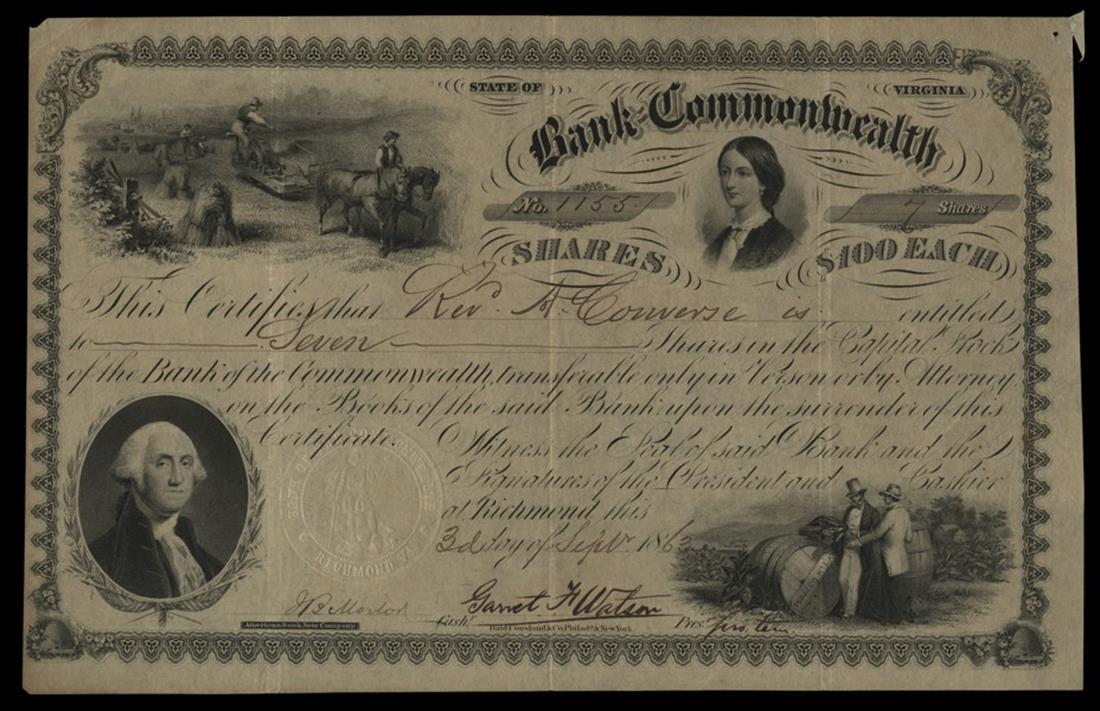 STATE OF VIRGINIA
Bank of Commonwealth
No. 1155
7 Shares
SHARES $100 EACH
This Certifies that Revd. A. Converse is entitled
to Seven Shares in the Capital Stock
of the Bank of the Commonwealth, transferable only in Person or by Attorney
on the Books of the said Bank upon the surrender of this
Certificate. Witness the Seal of said Bank and the
Signatures of the President and Cashier
at Richmond this
3d day of Septr. 186
RICHMOND VA
Garret F Watson
Cash. Pres. pro. tem
American Bank Note Company.
Bald Cousland & Co. Philada. & New York.